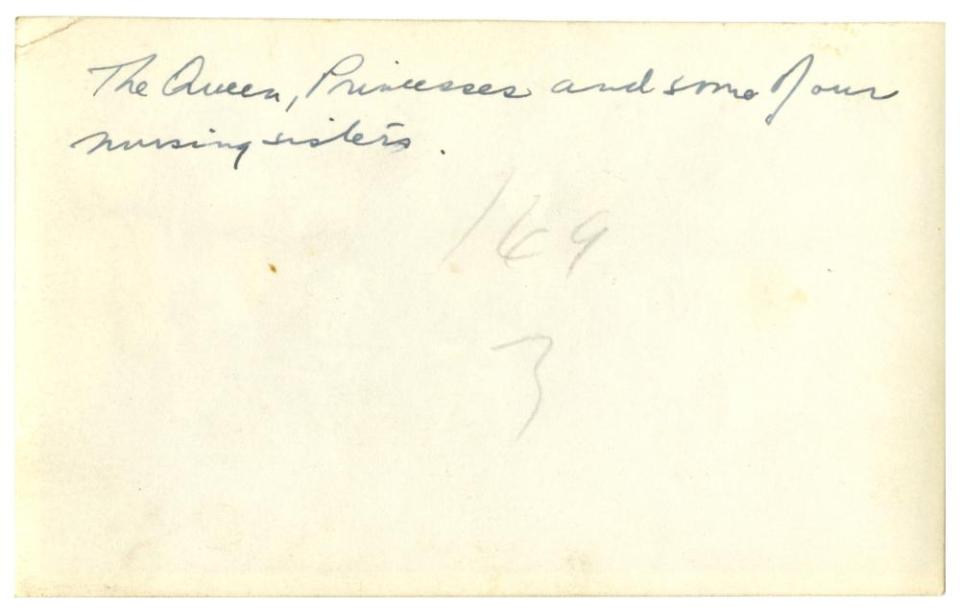 The Queen, Princesses and some of our
nursing sisters.
169
3